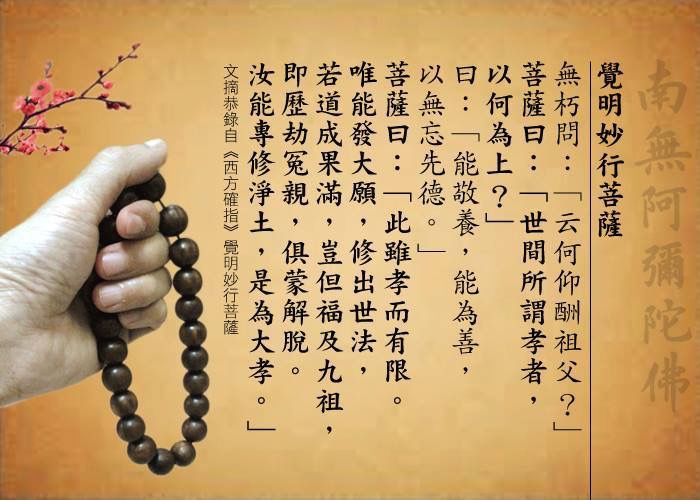 南無阿彌陀佛
覺明妙行菩薩
無朽問：「云何仰酬祖父？」
菩薩曰：「世間所謂孝者，
以何為上？」
曰：「能敬養，能為善，
以無忘先德。」
菩薩曰：「此雖孝而有限。
唯能發大願，修出世法，
若道成果滿，豈但福及九祖，
即歷劫冤親，俱蒙解脫。
汝能專修淨土，是為大孝。」
文摘恭錄自《西方確指》覺明妙行菩薩